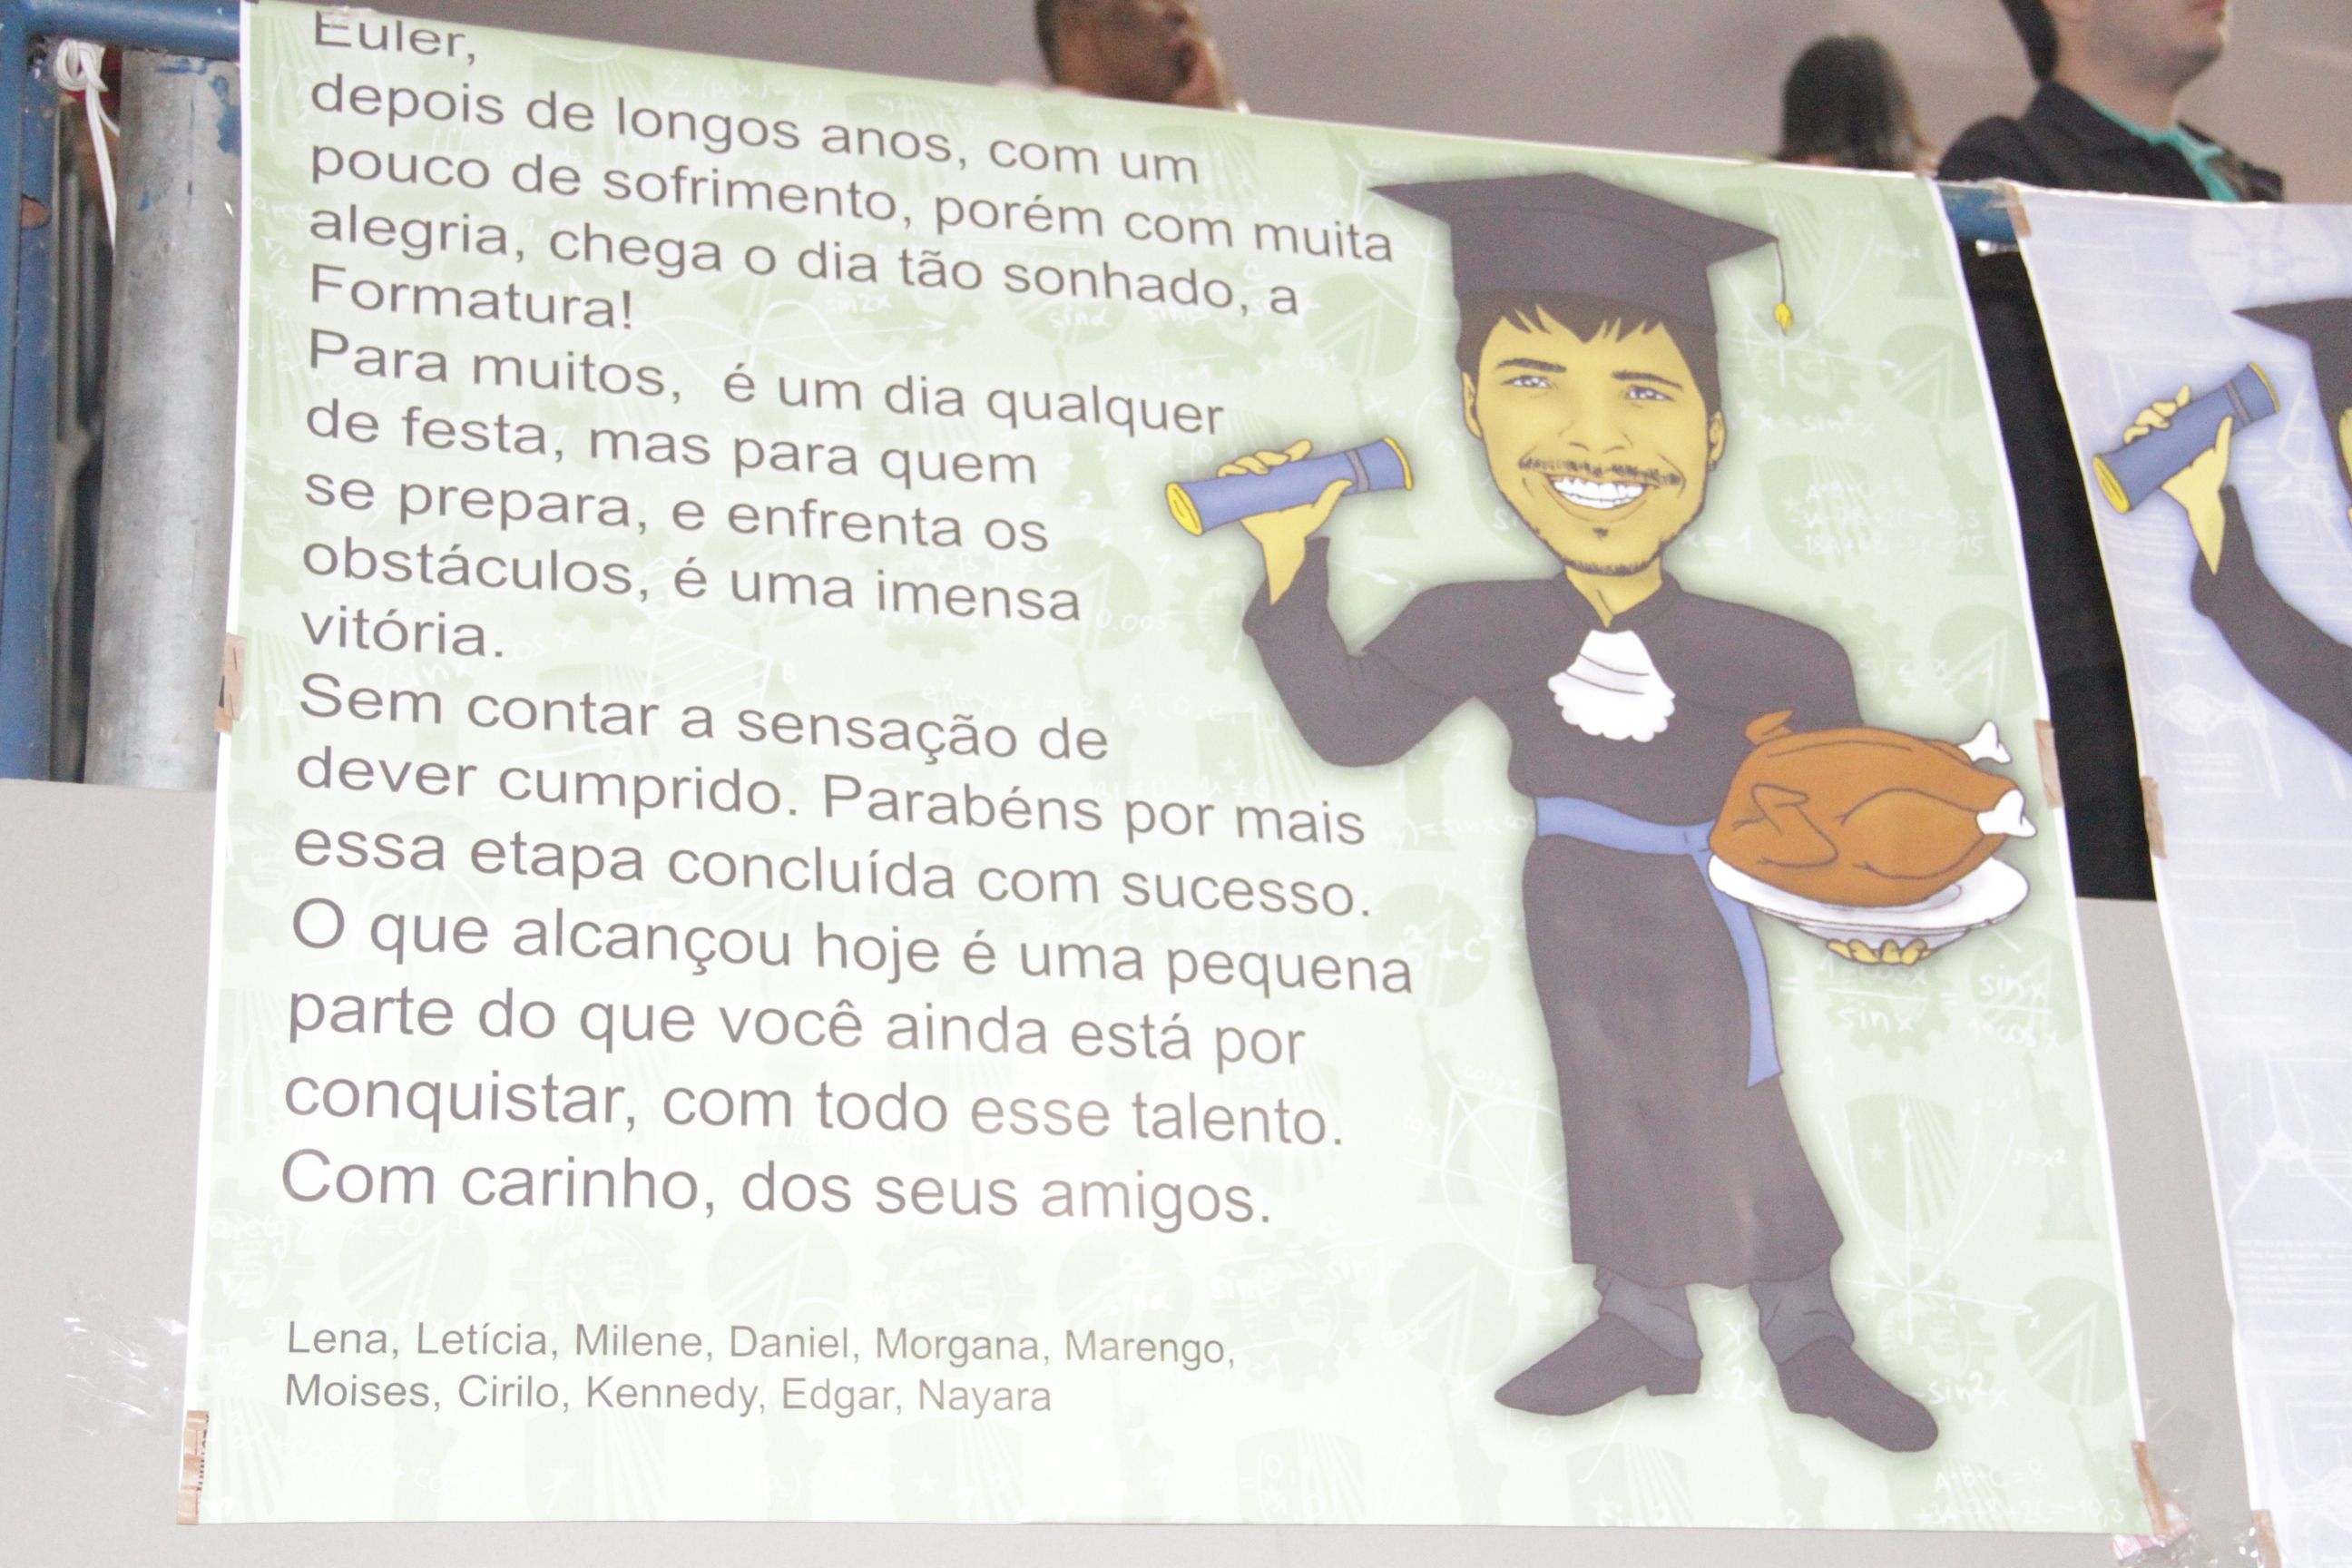 Euler,
depois de longos anos, com um
pouco de sofrimento, porém com muita
alegria, chega o dia tão sonhado, a
Formatura!
Para muitos,  é um dia qualquer
de festa, mas para quem
se prepara, e enfrenta os
obstáculos, é uma imensa
vitória.
Sem contar a sensação de
dever cumprido. Parabéns por mais
essa etapa concluída com sucesso.
O que alcançou hoje é uma pequena
parte do que você ainda está por
conquistar, com todo esse talento.
Com carinho, dos seus amigos.
Lena, Letícia, Milene, Daniel, Morgana, Marengo,
Moises, Cirilo, Kennedy, Edgar, Nayara